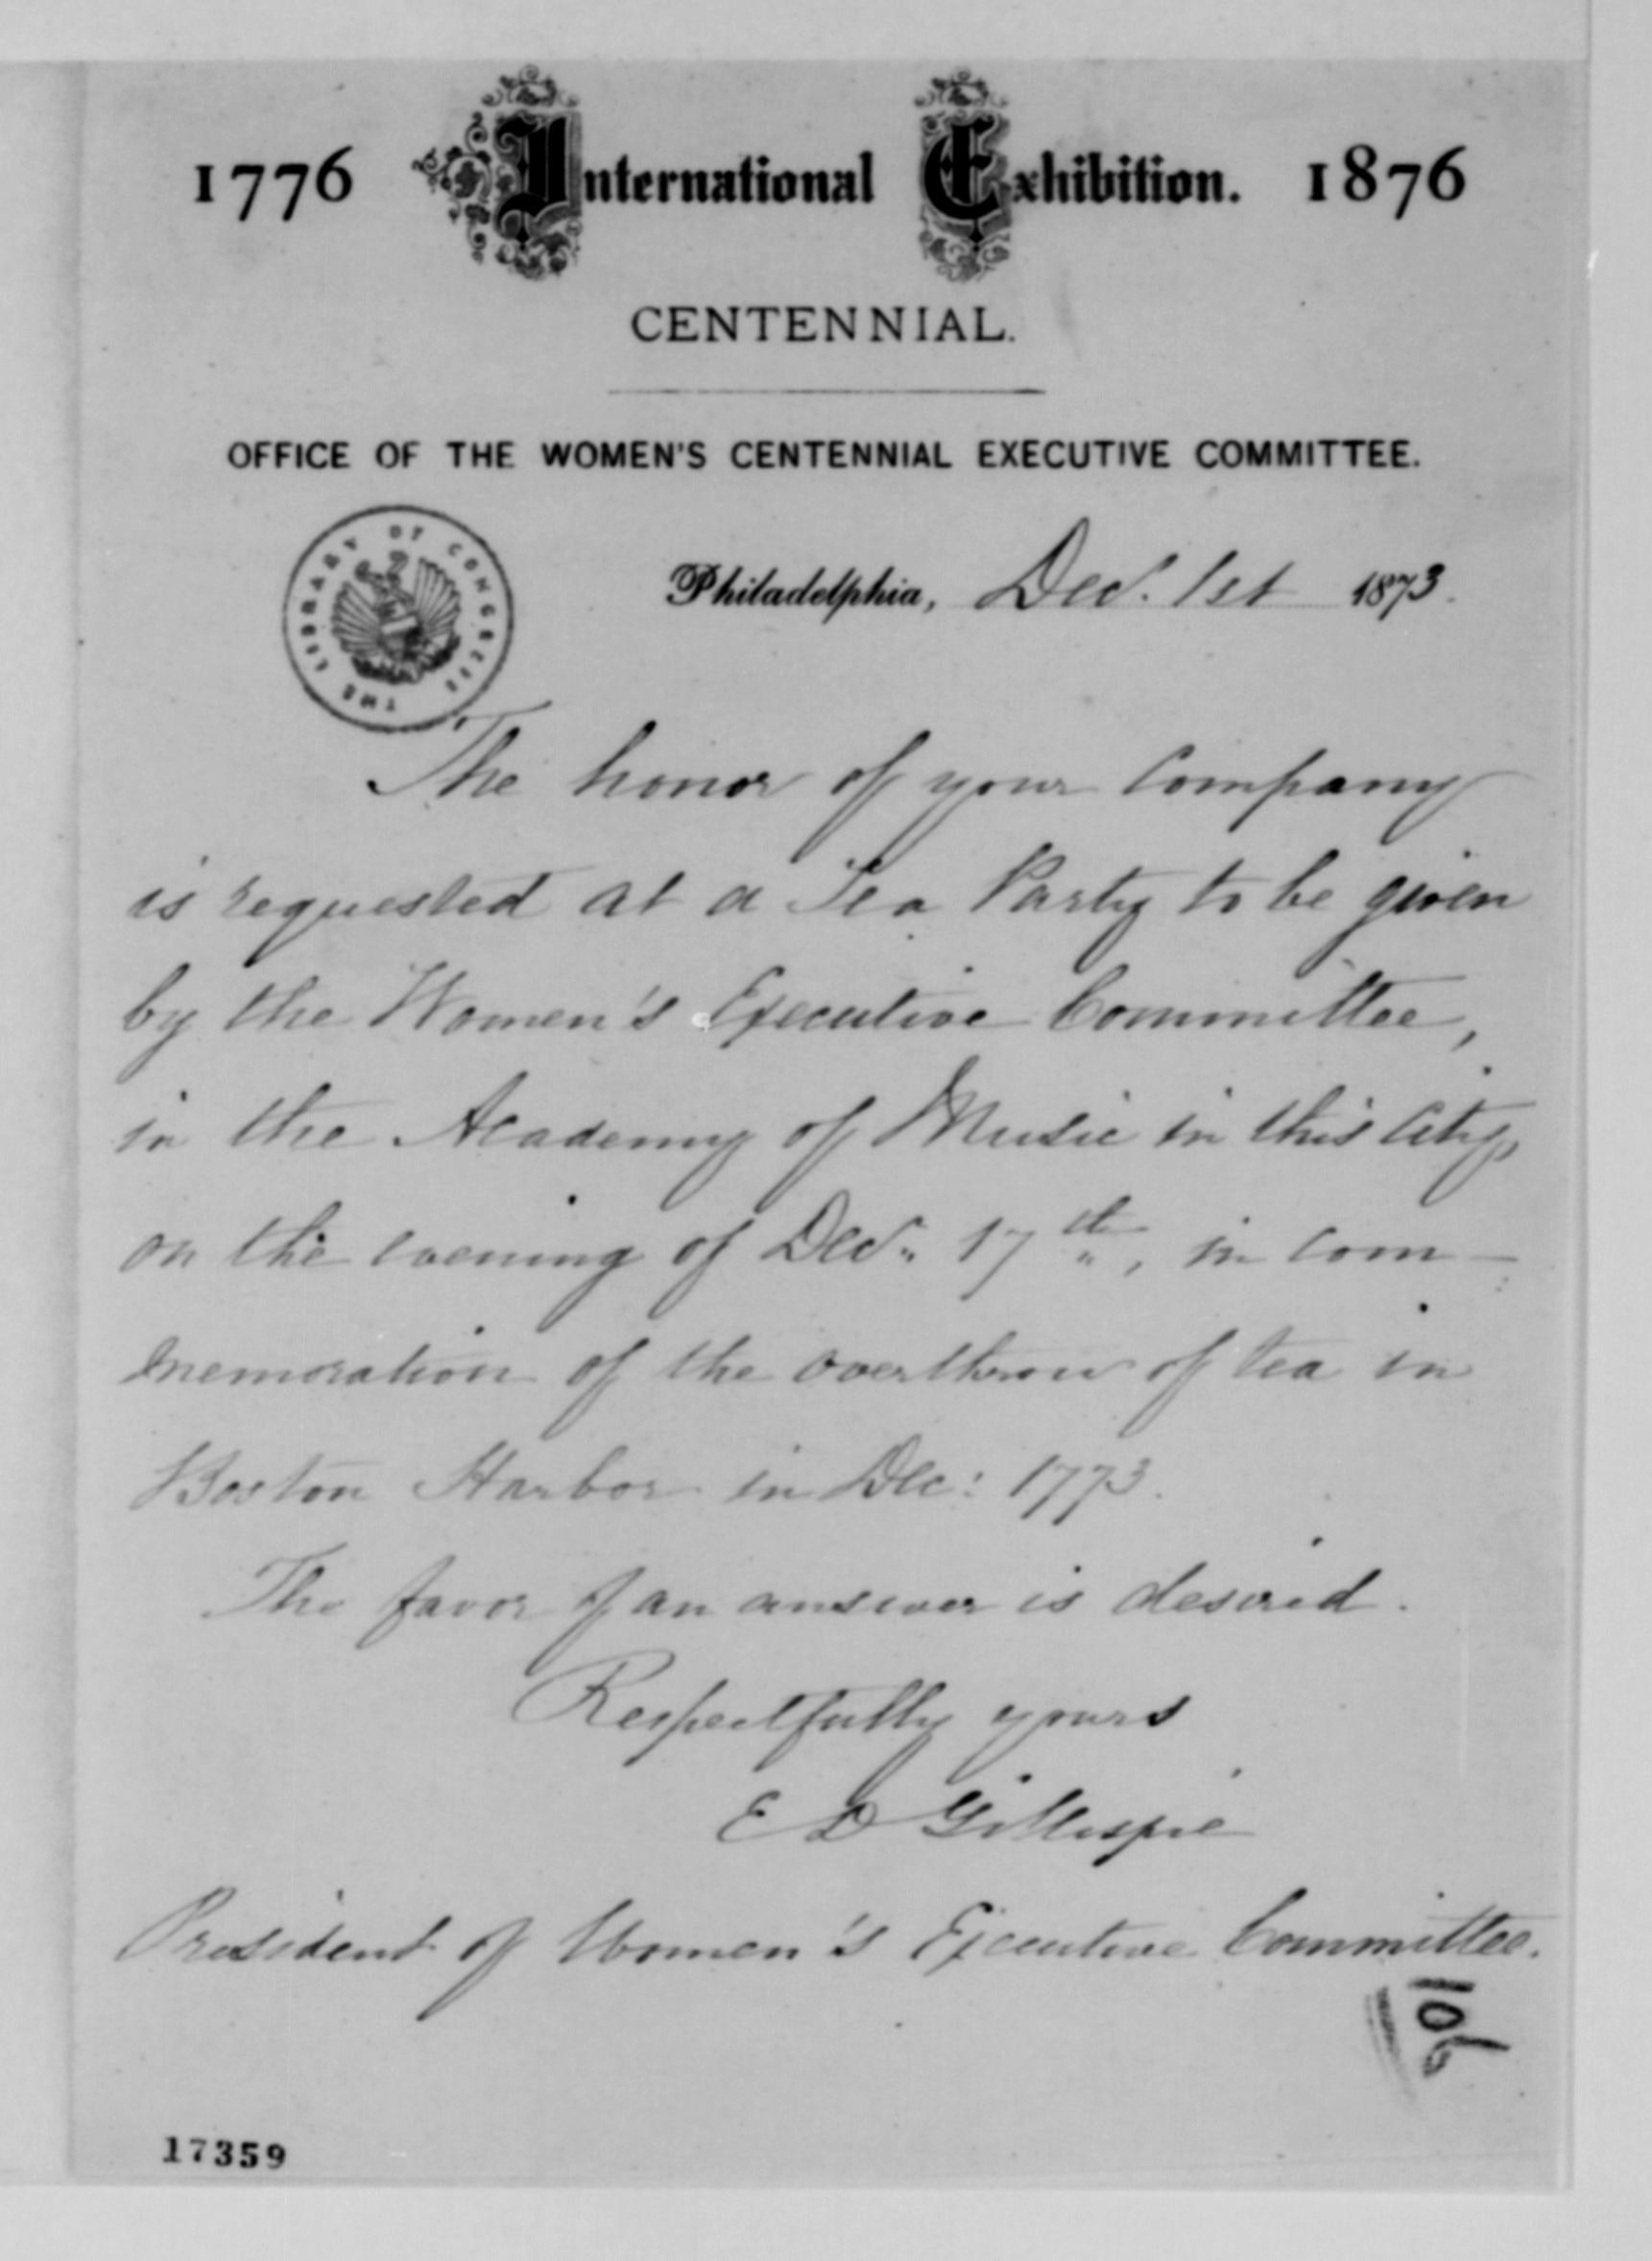 1776 International Exhibition. 1876
CENTENNIAL.
OFFICE OF THE WOMEN'S CENTENNIAL EXECUTIVE COMMITTEE.
THE LIBRARY OF CONGRESS
Philadelphia, Dec. 1st 1873.
The honor of your Company
is requested at a Tea Party to be given
by the Women's Executive Committee,
in the Academy of Music in this City,
on the evening of Dec. 17th, in com-
memoration of the overthrow of tea in
Boston Harbor in Dec: 1773.
The favor of an answer is desired.
Respectfully yours
E D Gillespie
President of Women's Executive Committee.
106
17359